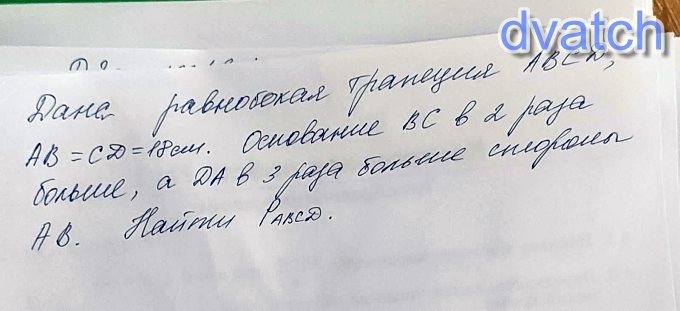 dvatch
Дана равнобокая трапеция ABCD,
AB = CD = 18 см. Основание BC в 2 раза
больше, а DA в 3 раза больше стороны
AB. Найти PABCD.